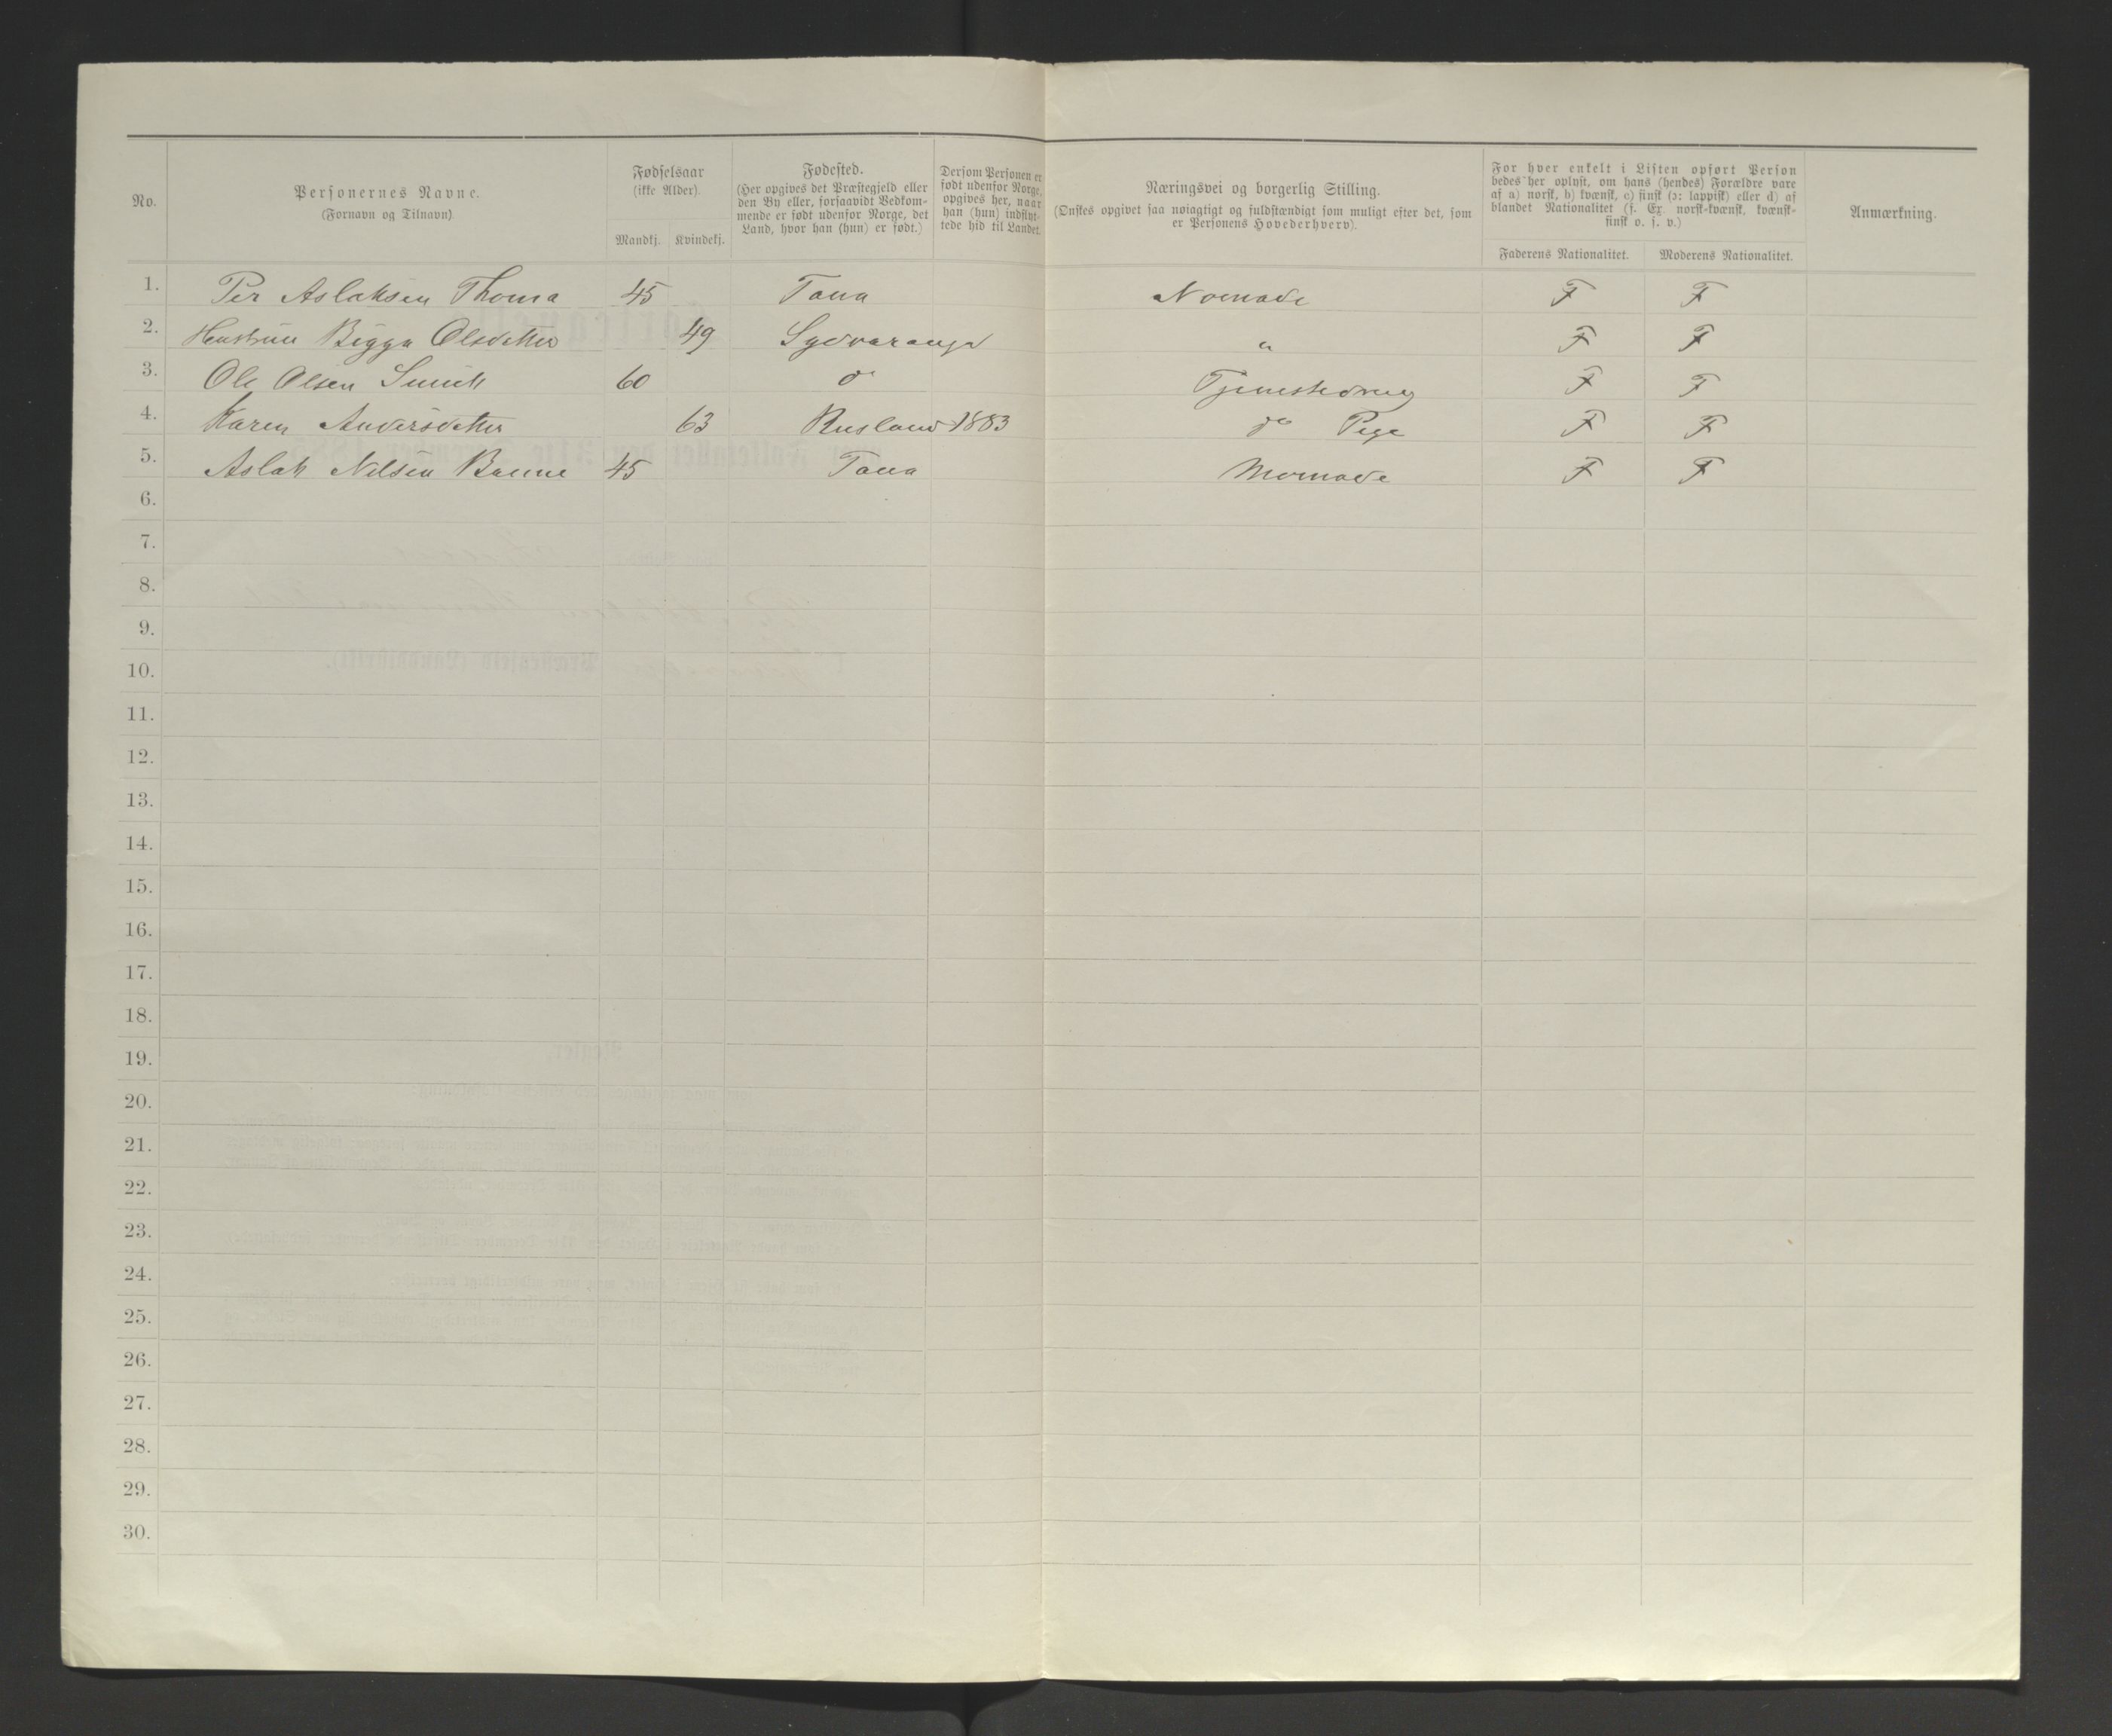 No.
Personernes Navne.
(Fornavn og Tilnavn)
Fødselsaar
(ikke Alder).
Mandkj. Kvindekj.
Fødested.
(Her opgives det Præstegjeld eller
den By eller, forsaavidt Vedkom-
mende er født udenfor Norge, det
Land, hvor han (hun) er født.)
Dersom Personen er
født udenfor Norge,
opgives her, naar
han (hun) indflyt-
tede hid til Landet.
Næringsvei og borgerlig Stilling.
(Ønskes opgivet saa nøiagtigt og fuldstændigt som muligt efter det, som
er Personens Hovederhverv).
For hver enkelt i Listen opført Person
bedes her oplyst, om hans (hendes) Forældre vare
af a) norsk, b) kvænsk, c) finsk (ɔ: lappisk) eller d) af
blandet Nationalitet (f. Ex. norsk-kvænsk, kvænsk-
finsk o. s. v.)
Faderens Nationalitet. Moderens Nationalitet.
Anmærkning.
1. Per Aslaksen Thoma 45 Tana Nomade F F
2. Hustru Bigga Olsdatter 49 Sydvaranger " F F
3. Ole Olsen 60 do F F
4. Karen Andersdatter 63 Rusland 1883 do Pige F F
5. Aslak Nilsen 45 Tana Nomade F F
6.
7.
8.
9.
10.
11.
12.
13.
14.
15.
16.
17.
18.
19.
20.
21.
22.
23.
24.
25.
26.
27.
28.
29.
30.